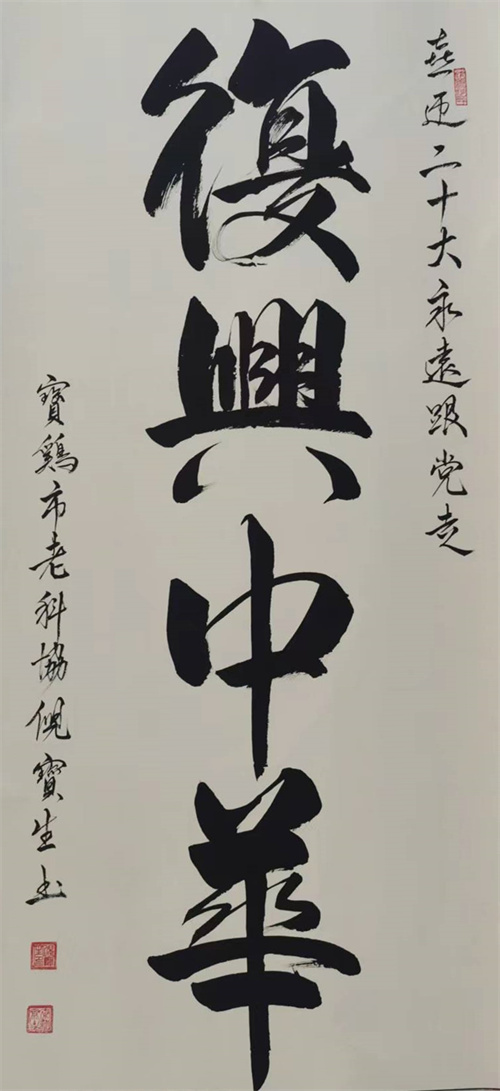 喜迎二十大永遠跟党走
復興中華
寶鷄市老科協倪寶生书